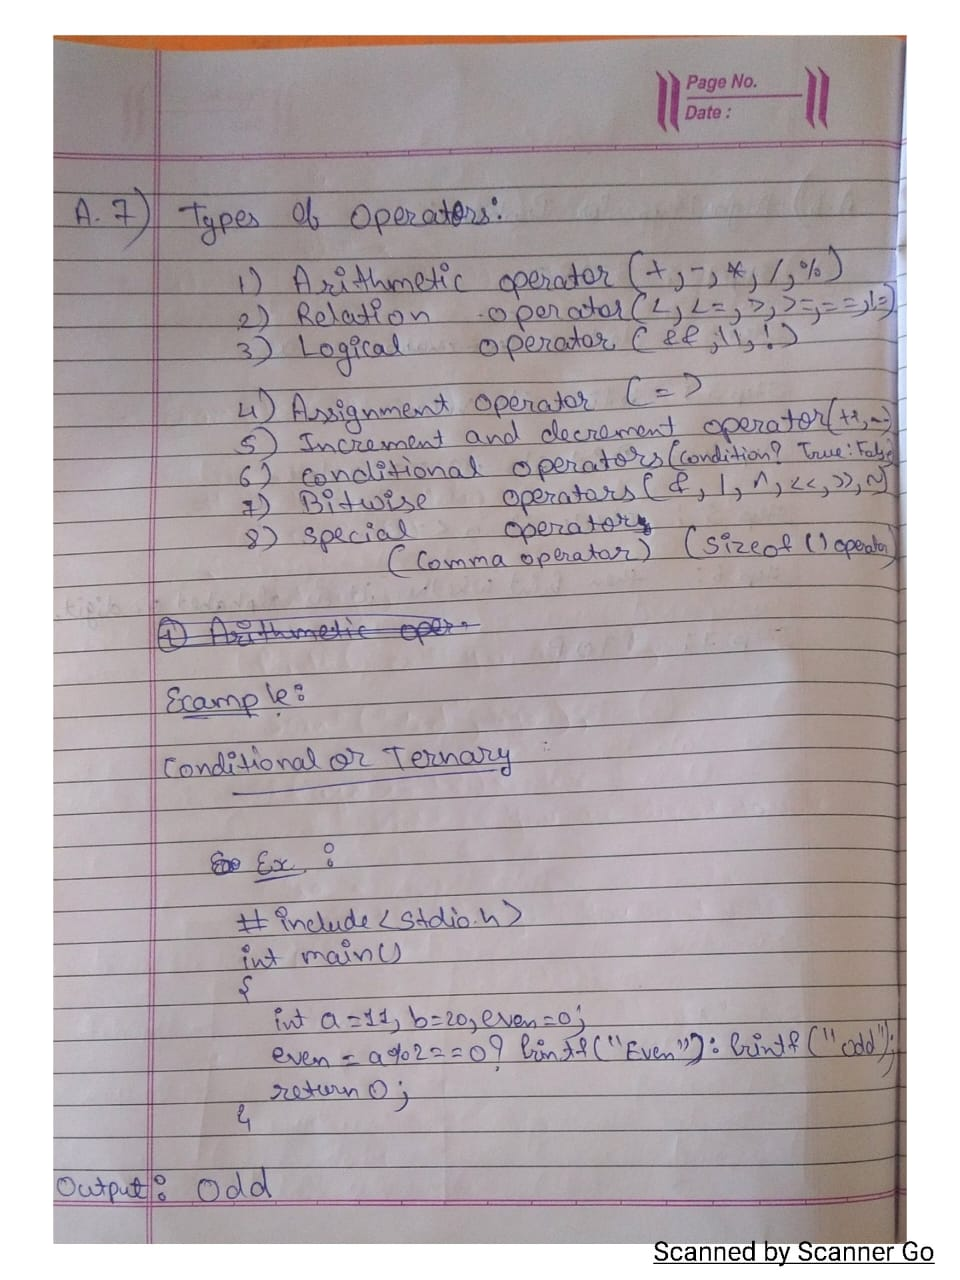 Page No.
Date :
A. 7) Types of Operators:
1) Arithmetic operator (+, -, *, /, %)
2) Relation operator (<, <=, >, >=, ==, !=)
3) Logical operator ( &&, ||, ! )
4) Assignment operator ( = )
5) Increment and decrement operator (++, --)
6) Conditional operators (Condition? True : False)
7) Bitwise operators ( &, |, ^, <<, >>, ~)
8) special operators
(Comma operator) (Sizeof () operator)
① Arithmetic oper.
Example:
Conditional or Ternary
Ex :
# include <stdio.h>
int main()
{
int a = 11, b = 20, even = 0;
even = a%2 == 0? printf("Even") : printf("odd");
return 0;
}
Output: Odd
Scanned by Scanner Go